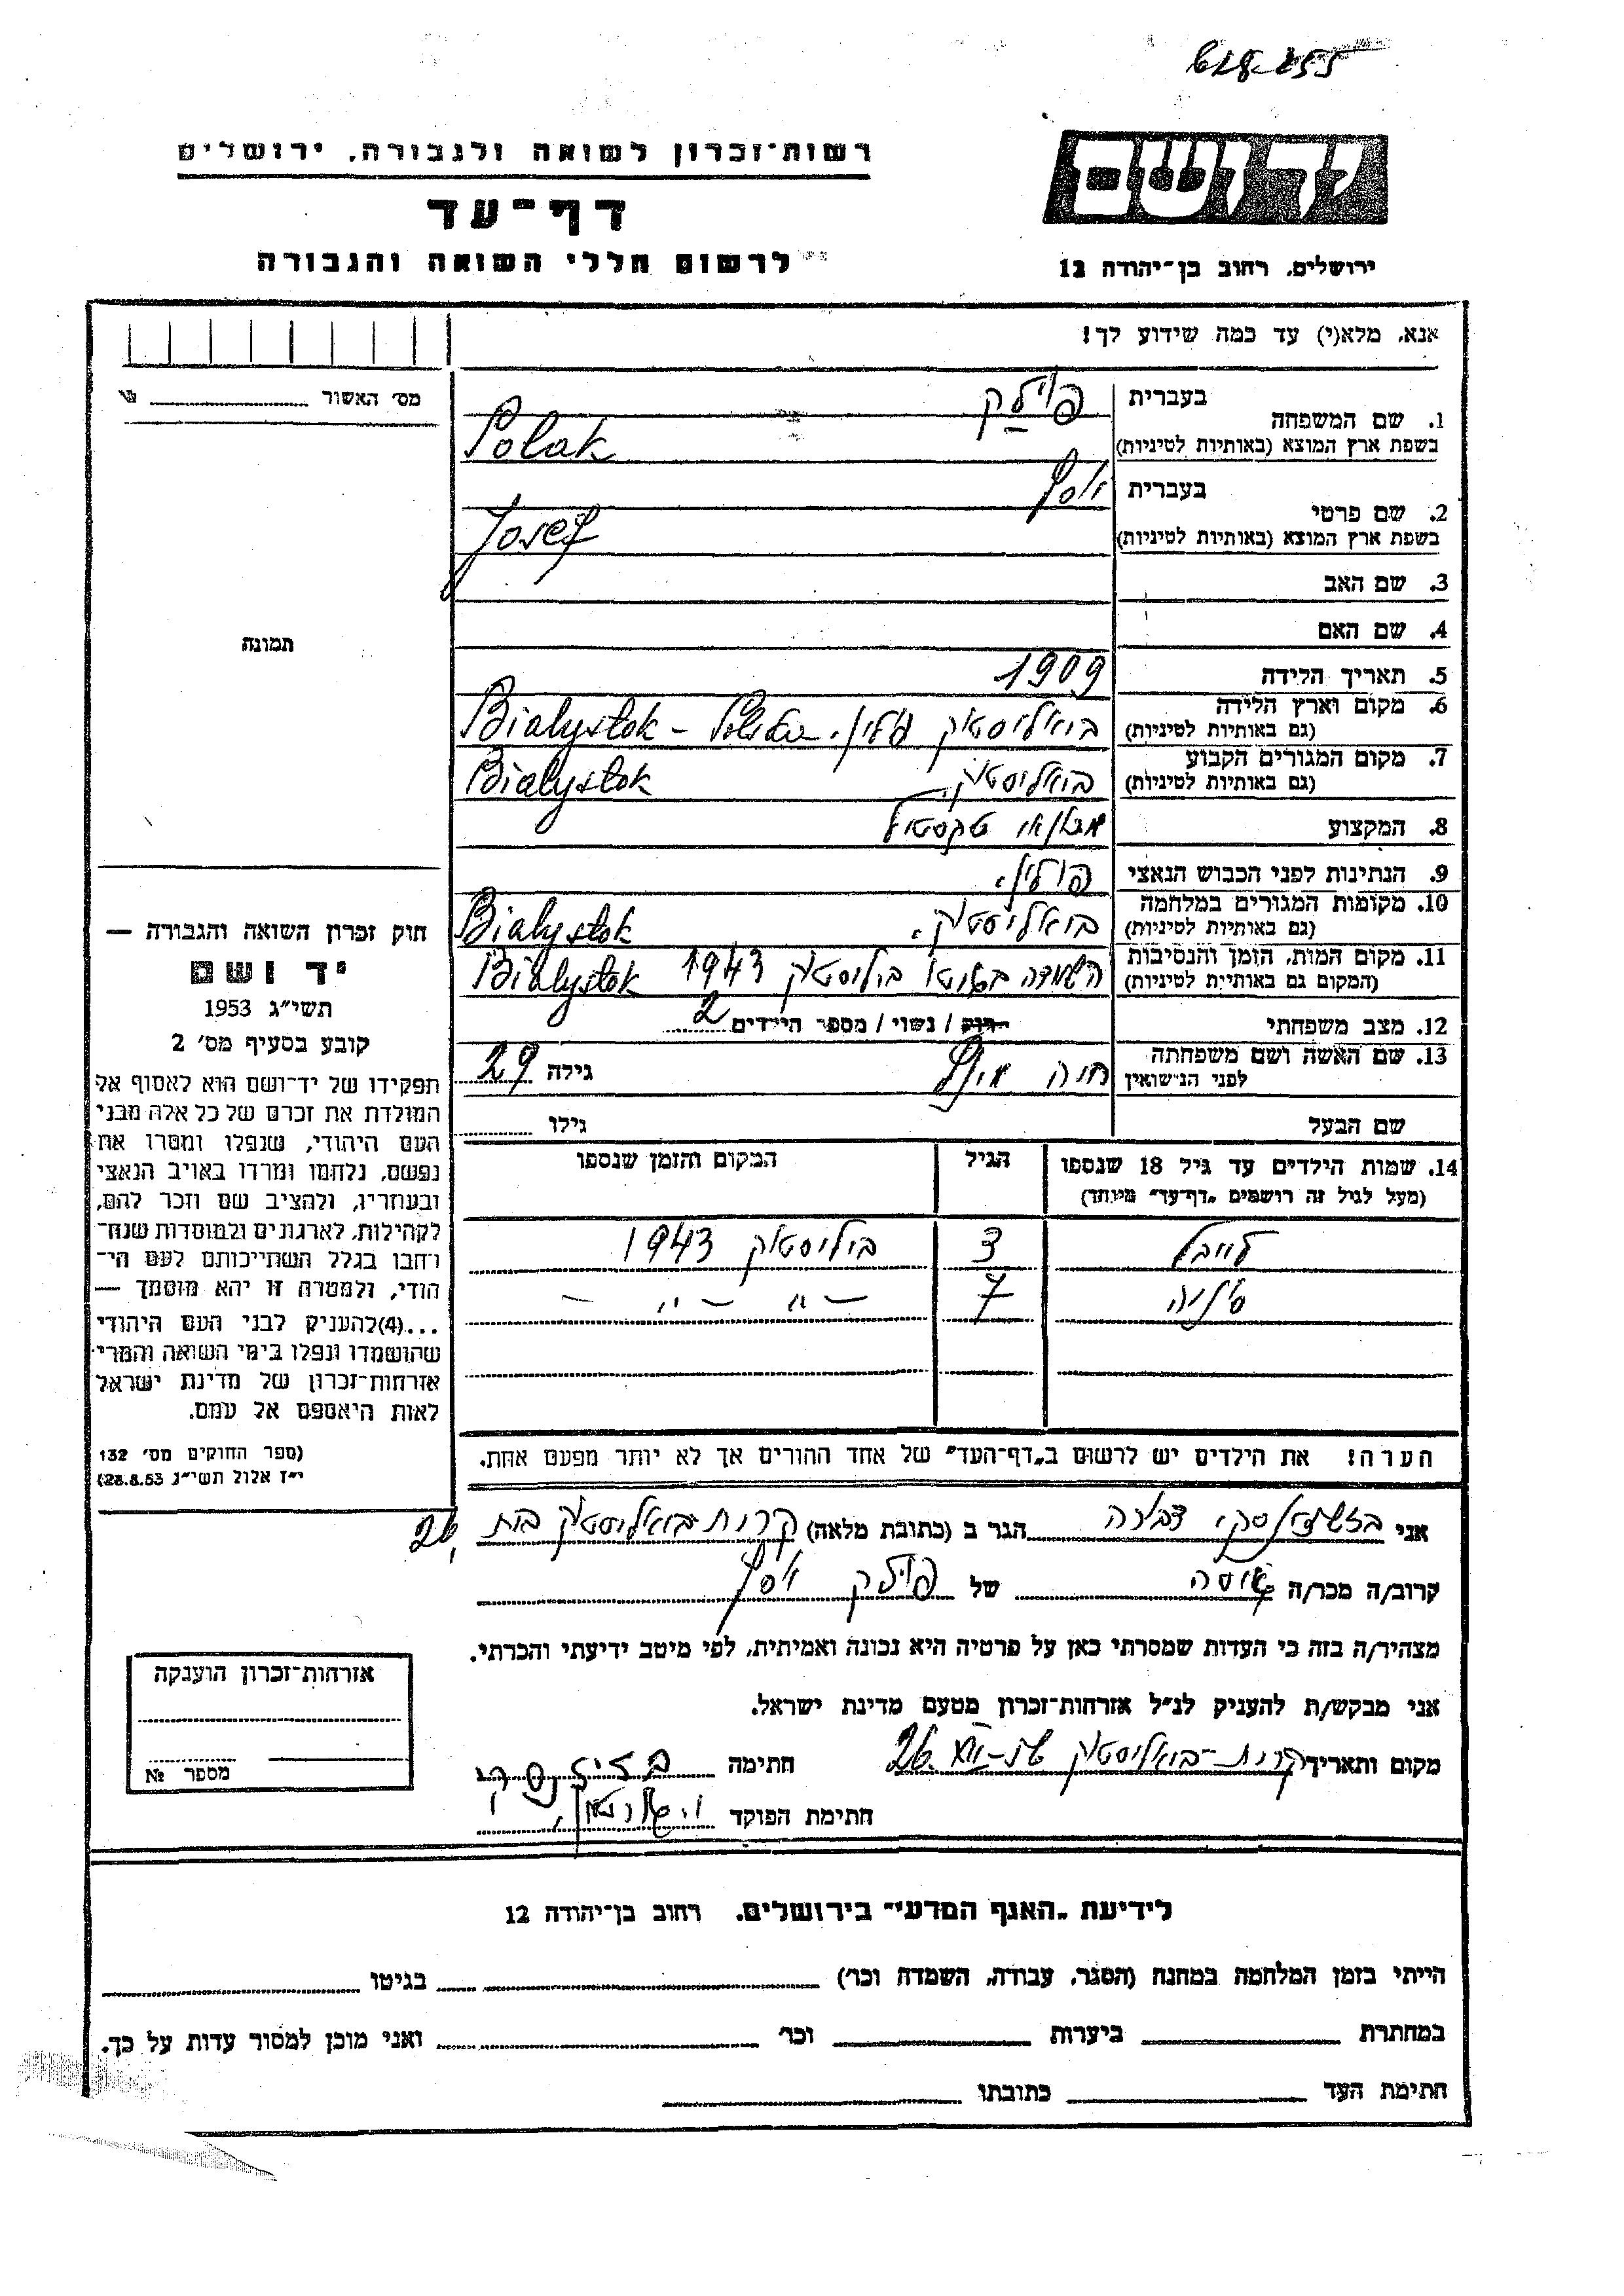 רשות־זכרון לשואה ולגבורה, ירושלים
דף־עד
לרשום חללי השואה והגבורה
יד ושם
ירושלים, רחוב בן־יהודה 12
אנא, מלא(י) עד כמה שידוע לך!
מס׳ האשור
1. שם המשפחה
בעברית פולק
בשפת ארץ המוצא (באותיות לטיניות) Polak
2. שם פרטי
בעברית יוסף
בשפת ארץ המוצא (באותיות לטיניות) Josef
3. שם האב
4. שם האם
תמונה
5. תאריך הלידה 1909
6. מקום וארץ הלידה
(גם באותיות לטיניות) ביאליסטוק פולין. Bialystok - Polska
7. מקום המגורים הקבוע
(גם באותיות לטיניות) ביאליסטוק. Bialystok
8. המקצוע טקסטיל
9. הנתינות לפני הכבוש הנאצי פולין.
10. מקומות המגורים במלחמה
(גם באותיות לטיניות) ביאליסטוק. Bialystok
11. מקום המות, הזמן והנסיבות
(המקום גם באותיות לטיניות) השמדה בגטו ביליסטוק 1943 Bialystok
12. מצב משפחתי רוק / נשוי / מספר הילדים 2
13. שם האשה ושם משפחתה
לפני הנישואין חיה גילה 29
שם הבעל גילו
14. שמות הילדים עד גיל 18 שנספו הגיל המקום והזמן שנספו
(מעל לגיל זה רושמים „דף־עד״ מיוחד)
3 ביליסטוק 1943
7 — ״ — ״ —
הערה! את הילדים יש לרשום ב„דף־העד״ של אחד ההורים אך לא יותר מפעם אחת.
חוק זכרון השואה והגבורה —
יד ושם
תשי״ג 1953
קובע בסעיף מס׳ 2
תפקידו של יד־ושם הוא לאסוף אל
המולדת את זכרם של כל אלה מבני
העם היהודי, שנפלו ומסרו את
נפשם, נלחמו ומרדו באויב הנאצי
ובעוזריו, ולהציב שם וזכר להם,
לקהילות, לארגונים ולמוסדות שנח־
רחבו בגלל השתייכותם לעם הי־
הודי, ולמטרה זו יהא מוסמך —
...(4)להעניק לבני העם היהודי
שהושמדו ונפלו בימי השואה והמרי
אזרחות־זכרון של מדינת ישראל
לאות היאספם אל עמם.
(ספר החוקים מס׳ 132
י״ז אלול תשי״ג 28.8.53)
אני דבורה הגר ב (כתובת מלאה) קרית־ביאליסטוק בית 26
קרוב/ה מכר/ה גיסה של פולק יוסף
מצהיר/ה בזה כי העדות שמסרתי כאן על פרטיה היא נכונה ואמיתית, לפי מיטב ידיעתי והכרתי.
אני מבקש/ת להעניק לנ״ל אזרחות־זכרון מטעם מדינת ישראל.
מקום ותאריך קרית־ביאליסטוק חתימה
חתימת הפוקד
אזרחות־זכרון הוענקה
מספר №
לידיעת „האגף המדעי״ בירושלים, רחוב בן־יהודה 12
הייתי בזמן המלחמה במחנה (הסגר, עבודה, השמדה וכו׳) בגיטו
במחתרת ביערות וכו׳ ואני מוכן למסור עדות על כך.
חתימת העד כתובתו